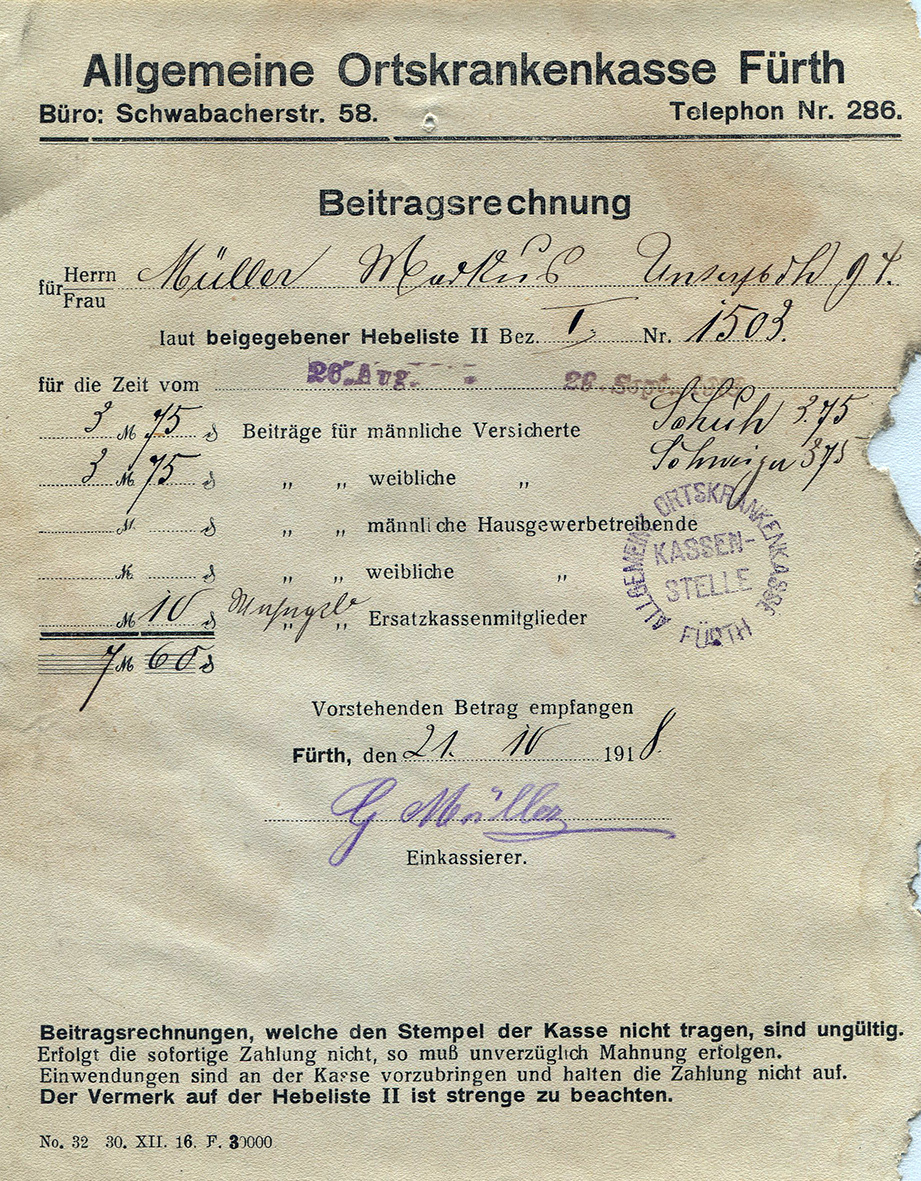 Allgemeine Ortskrankenkasse Fürth
Büro: Schwabacherstr. 58. Telephon Nr. 286.
Beitragsrechnung
für Herrn Frau Müller Markus 94.
laut beigegebener Hebeliste II Bez. I Nr. 1503.
für die Zeit vom 26. Aug. 29. Sept.
3 M 75 ₰ Beiträge für männliche Versicherte Schuh 3.75
3 M 75 ₰ „ „ weibliche „ 3 75
M ₰ „ „ männliche Hausgewerbetreibende
M ₰ „ „ weibliche „
M 10 ₰ „ „ Ersatzkassenmitglieder
7 M 60 ₰
ALLGEMEINE ORTSKRANKENKASSE FÜRTH
KASSEN-
STELLE
Vorstehenden Betrag empfangen
Fürth, den 21. 10 1918.
G Müller
Einkassierer.
Beitragsrechnungen, welche den Stempel der Kasse nicht tragen, sind ungültig.
Erfolgt die sofortige Zahlung nicht, so muß unverzüglich Mahnung erfolgen.
Einwendungen sind an der Kasse vorzubringen und halten die Zahlung nicht auf.
Der Vermerk auf der Hebeliste II ist strenge zu beachten.
No. 32 30. XII. 16. F. 30000